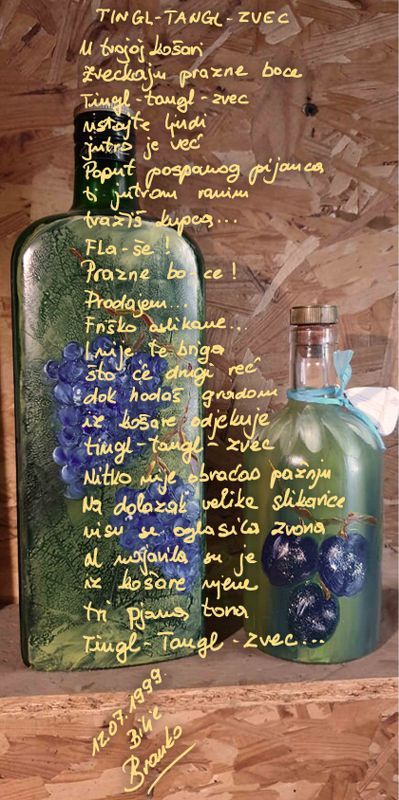 TINGL-TANGL-ZVEC
U tvojoj košari
Zveckaju prazne boce
Tingl-tangl-zvec
ustajte ljudi
jutro je već
Poput pospanog pijanca
ti jutrom ranim
tražiš kupca...
Fla-še!
Prazne bo-ce!
Prodajem...
Friško oslikane...
I nije te briga
što će drugi reć
dok hodaš gradom
iz košare odjekuje
tingl-tangl-zvec
Nitko nije obraćao pažnju
Na dolazak velike slikarice
nisu se oglasila zvona
al najavila su je
iz košare njene
tri pjana tona
Tingl-Tangl-zvec...
12.07.1999.
Bilić
Branko